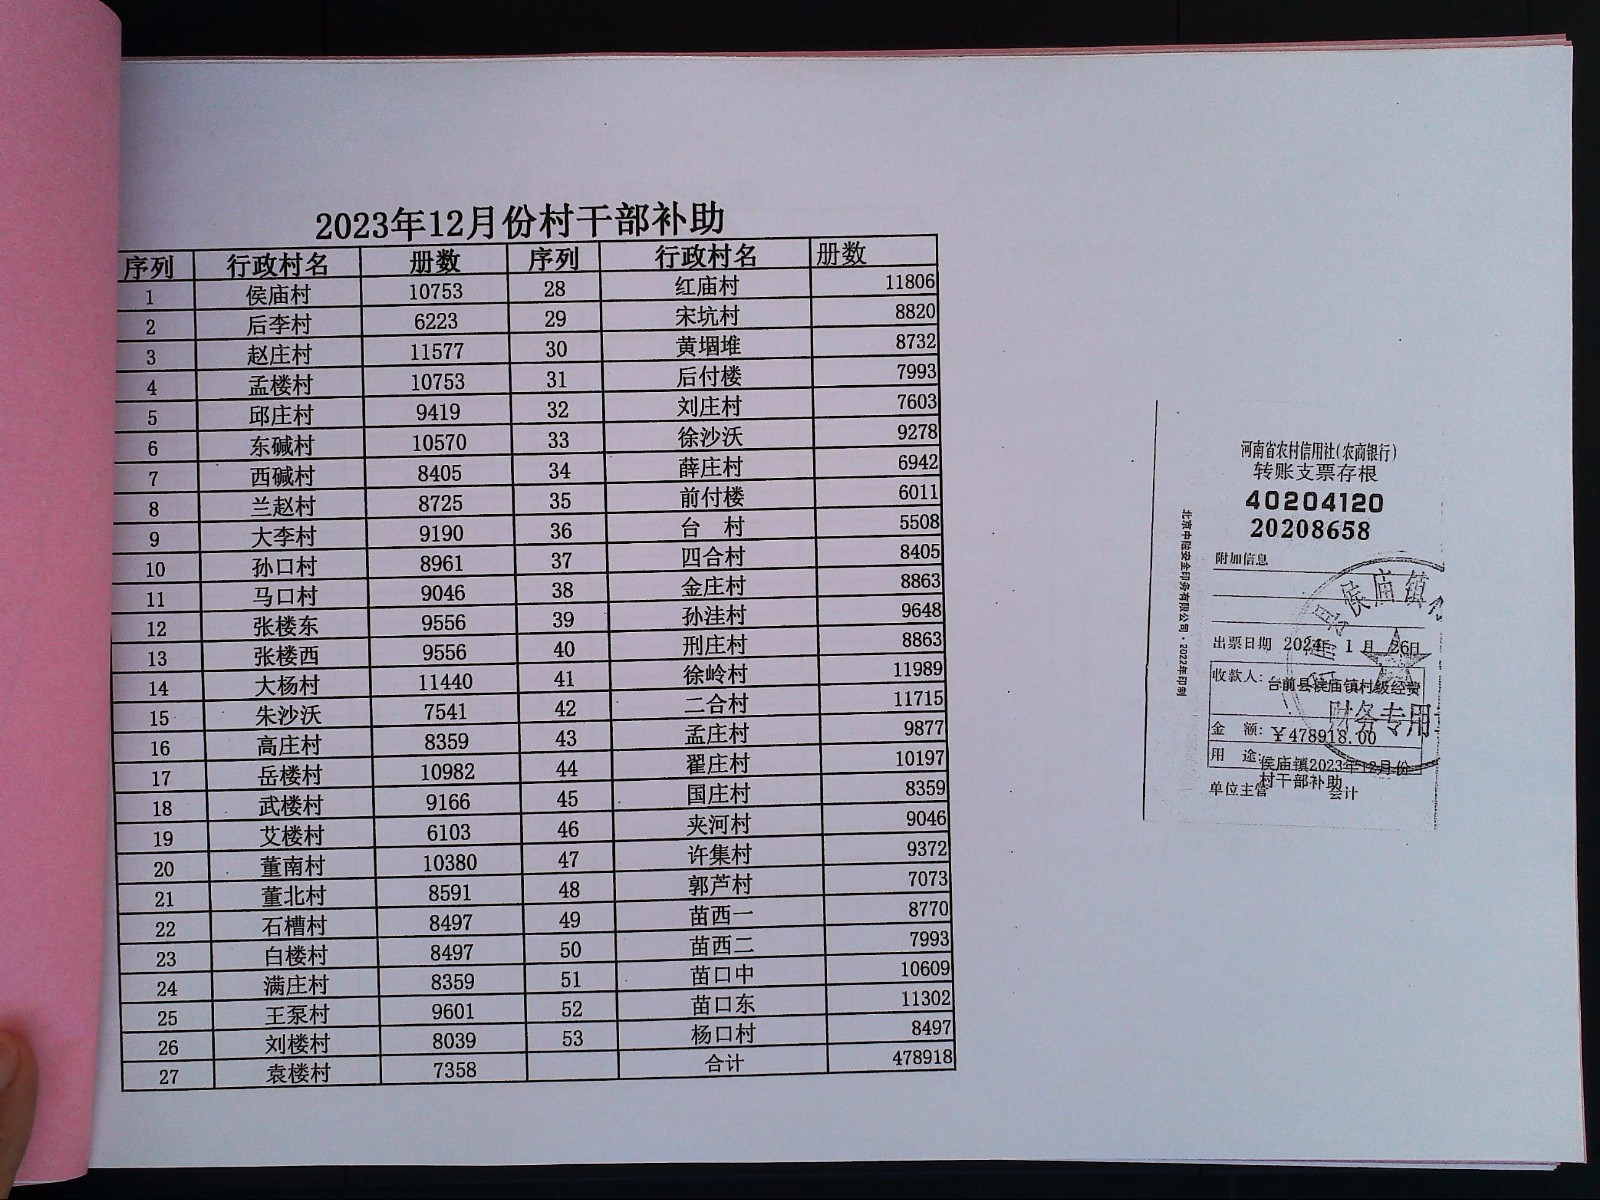 2023年12月份村干部补助
序列 行政村名 册数 序列 行政村名 册数
1 侯庙村 10753 28 红庙村 11806
2 后李村 6223 29 宋坑村 8820
3 赵庄村 11577 30 黄堌堆 8732
4 孟楼村 10753 31 后付楼 7993
5 邱庄村 9419 32 刘庄村 7603
6 东碱村 10570 33 徐沙沃 9278
7 西碱村 8405 34 薛庄村 6942
8 兰赵村 8725 35 前付楼 6011
9 大李村 9190 36 台 村 5508
10 孙口村 8961 37 四合村 8405
11 马口村 9046 38 金庄村 8863
12 张楼东 9556 39 孙洼村 9648
13 张楼西 9556 40 刑庄村 8863
14 大杨村 11440 41 徐岭村 11989
15 朱沙沃 7541 42 二合村 11715
16 高庄村 8359 43 孟庄村 9877
17 岳楼村 10982 44 翟庄村 10197
18 武楼村 9166 45 国庄村 8359
19 艾楼村 6103 46 夹河村 9046
20 董南村 10380 47 许集村 9372
21 董北村 8591 48 郭芦村 7073
22 石槽村 8497 49 苗西一 8770
23 白楼村 8497 50 苗西二 7993
24 满庄村 8359 51 苗口中 10609
25 王泵村 9601 52 苗口东 11302
26 刘楼村 8039 53 杨口村 8497
27 袁楼村 7358 合计 478918
河南省农村信用社(农商银行)
转账支票存根
40204120
20208658
附加信息
出票日期 2024年 1月 26日
收款人: 台前县侯庙镇村级经费
金 额: ¥478918.00
用 途: 侯庙镇2023年12月份
村干部补助
单位主管 会计
北京中融安全印务有限公司·2022年印制
侯庙镇
财务专用